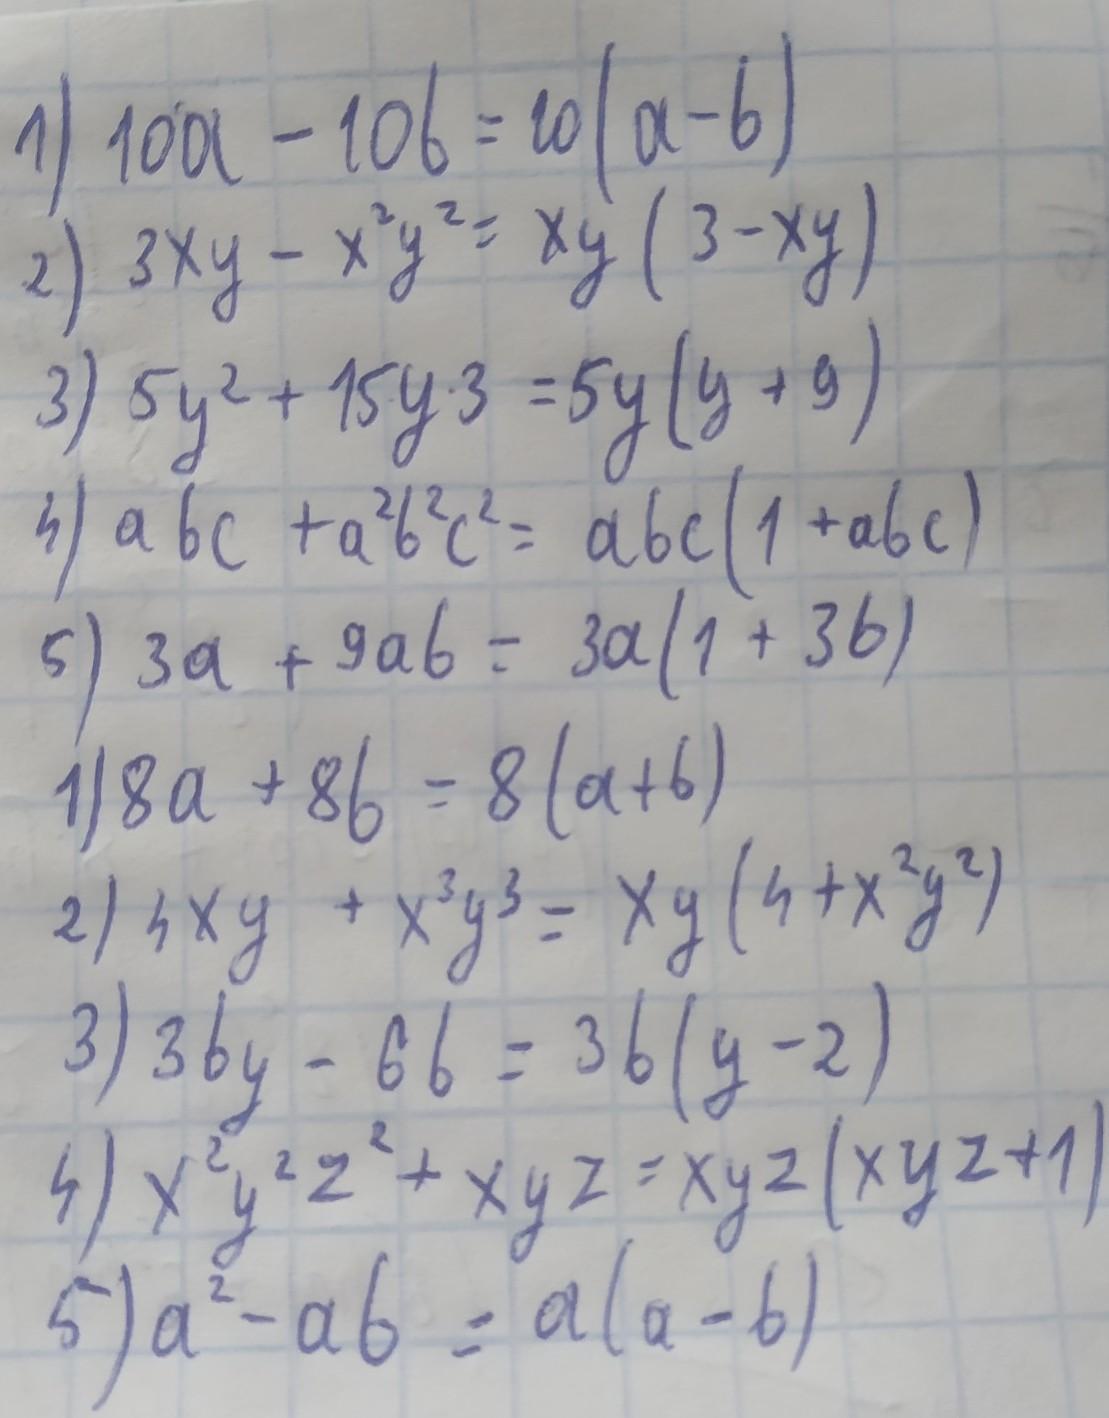 1) 10a - 10b = 10(a-b)
2) 3xy - x²y² = xy(3-xy)
3) 5y² + 15y·3 = 5y(y+9)
4) abc + a²b²c² = abc(1+abc)
5) 3a + 9ab = 3a(1+3b)
1) 8a + 8b = 8(a+b)
2) 4xy + x³y³ = xy(4+x²y²)
3) 3by - 6b = 3b(y-2)
4) x²y²z² + xyz = xyz(xyz+1)
5) a² - ab = a(a-b)